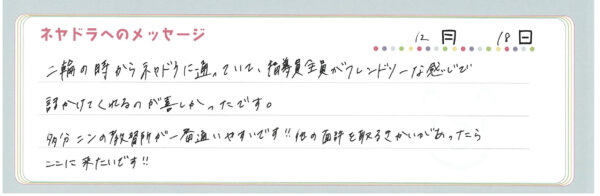 ネヤドラへのメッセージ 12月 18日
二輪の時からネヤドラに通っていて、指導員全員がフレンドリーな感じで
話かけてくれるのが喜しかったです。
多分ココの教習所が一番通いやすいです!!他の免許を取るきかいがあったら
ここに来たいです!!